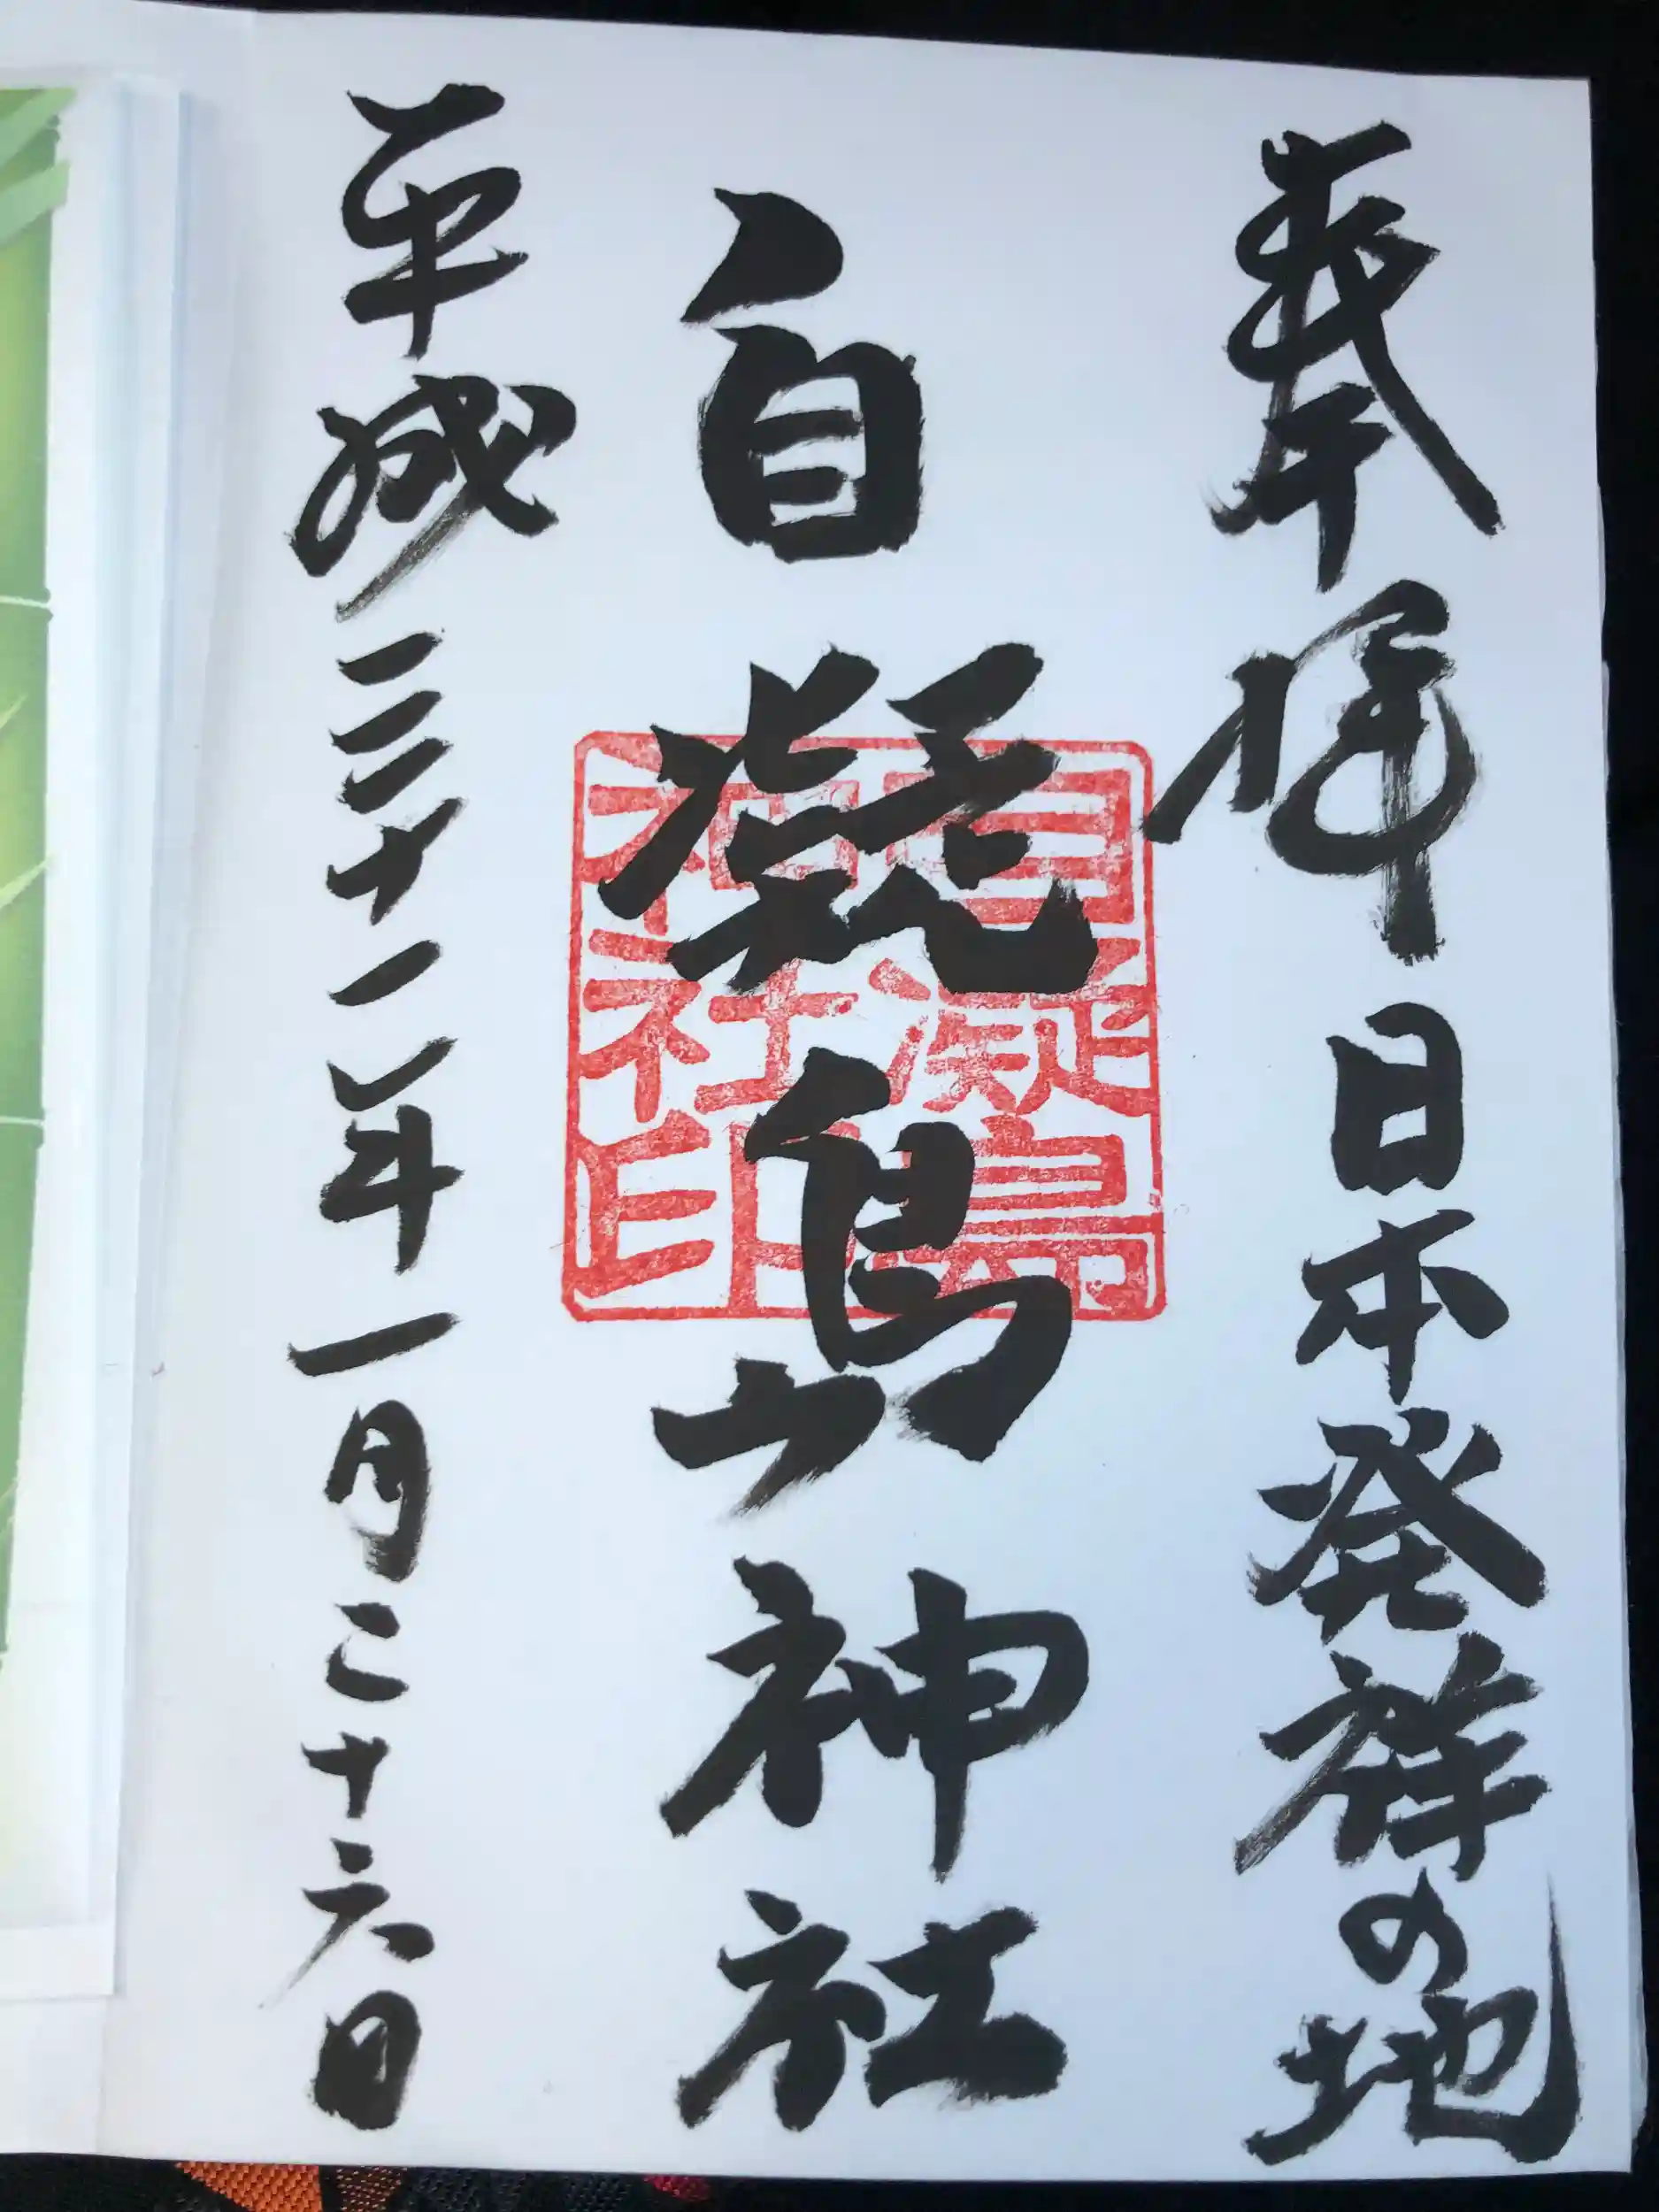 奉拝 日本発祥の地
自凝島神社
自凝島
神社印
平成三十一年一月二十六日